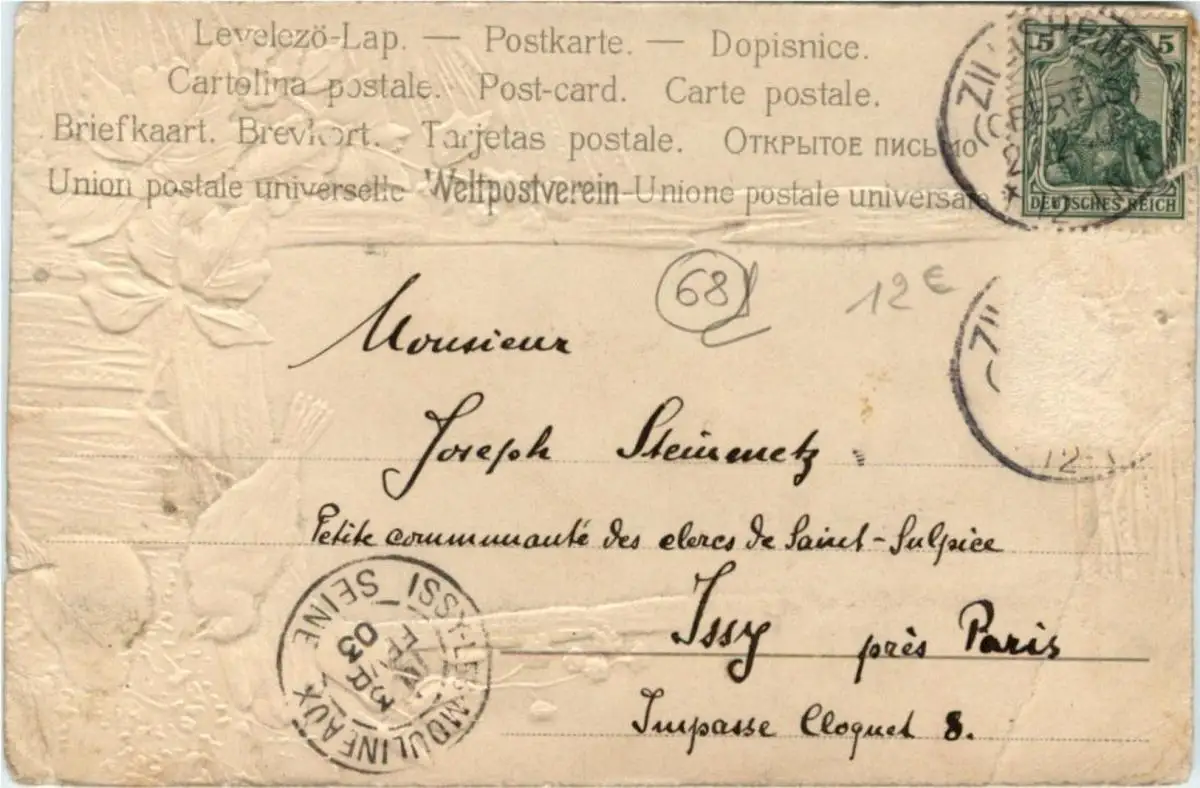 Levelezö-Lap. — Postkarte. — Dopisnice.
Cartolina postale. Post-card. Carte postale.
Briefkaart. Brevkort. Tarjetas postale. Открытое письмо
Union postale universelle Weltpostverein-Unione postale universale
5 5
DEUTSCHES REICH
68
12 €
Monsieur
Joseph Steinmetz
Petite communauté des clercs de Saint-Sulpice
Issy près Paris
Impasse Cloquet 8.
ISSY-LES-MOULINEAUX
SEINE
03